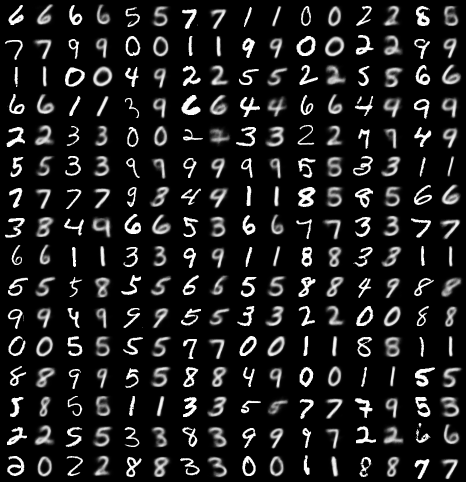 6 6 6 6 5 5 7 7 1 1 0 0 2 2 8 5
7 7 9 9 0 0 1 1 9 9 0 0 2 2 9 9
1 1 0 0 4 9 2 2 5 5 2 2 5 5 6 6
6 6 1 1 3 9 6 6 4 4 6 6 4 9 9 9
2 2 3 3 0 0 2 2 3 3 2 2 7 7 4 9
5 5 3 3 9 9 9 9 9 9 5 5 3 3 1 1
7 7 7 7 9 8 4 9 1 1 8 5 8 5 6 6
3 8 4 9 6 6 5 3 6 6 7 7 3 3 7 7
6 6 1 1 3 3 9 9 1 1 8 8 3 3 1 1
5 5 5 8 5 5 6 6 5 5 8 8 4 9 8 8
9 9 4 9 9 9 5 5 3 3 2 2 0 0 8 8
0 0 5 5 5 5 7 7 0 0 1 1 8 8 1 1
8 8 9 9 5 5 8 8 4 9 0 0 1 1 5 5
5 8 5 5 1 1 3 3 5 5 7 7 7 9 5 3
2 2 5 5 3 3 8 3 9 9 9 7 2 2 6 6
2 0 2 2 8 8 3 3 0 0 1 1 8 8 7 7